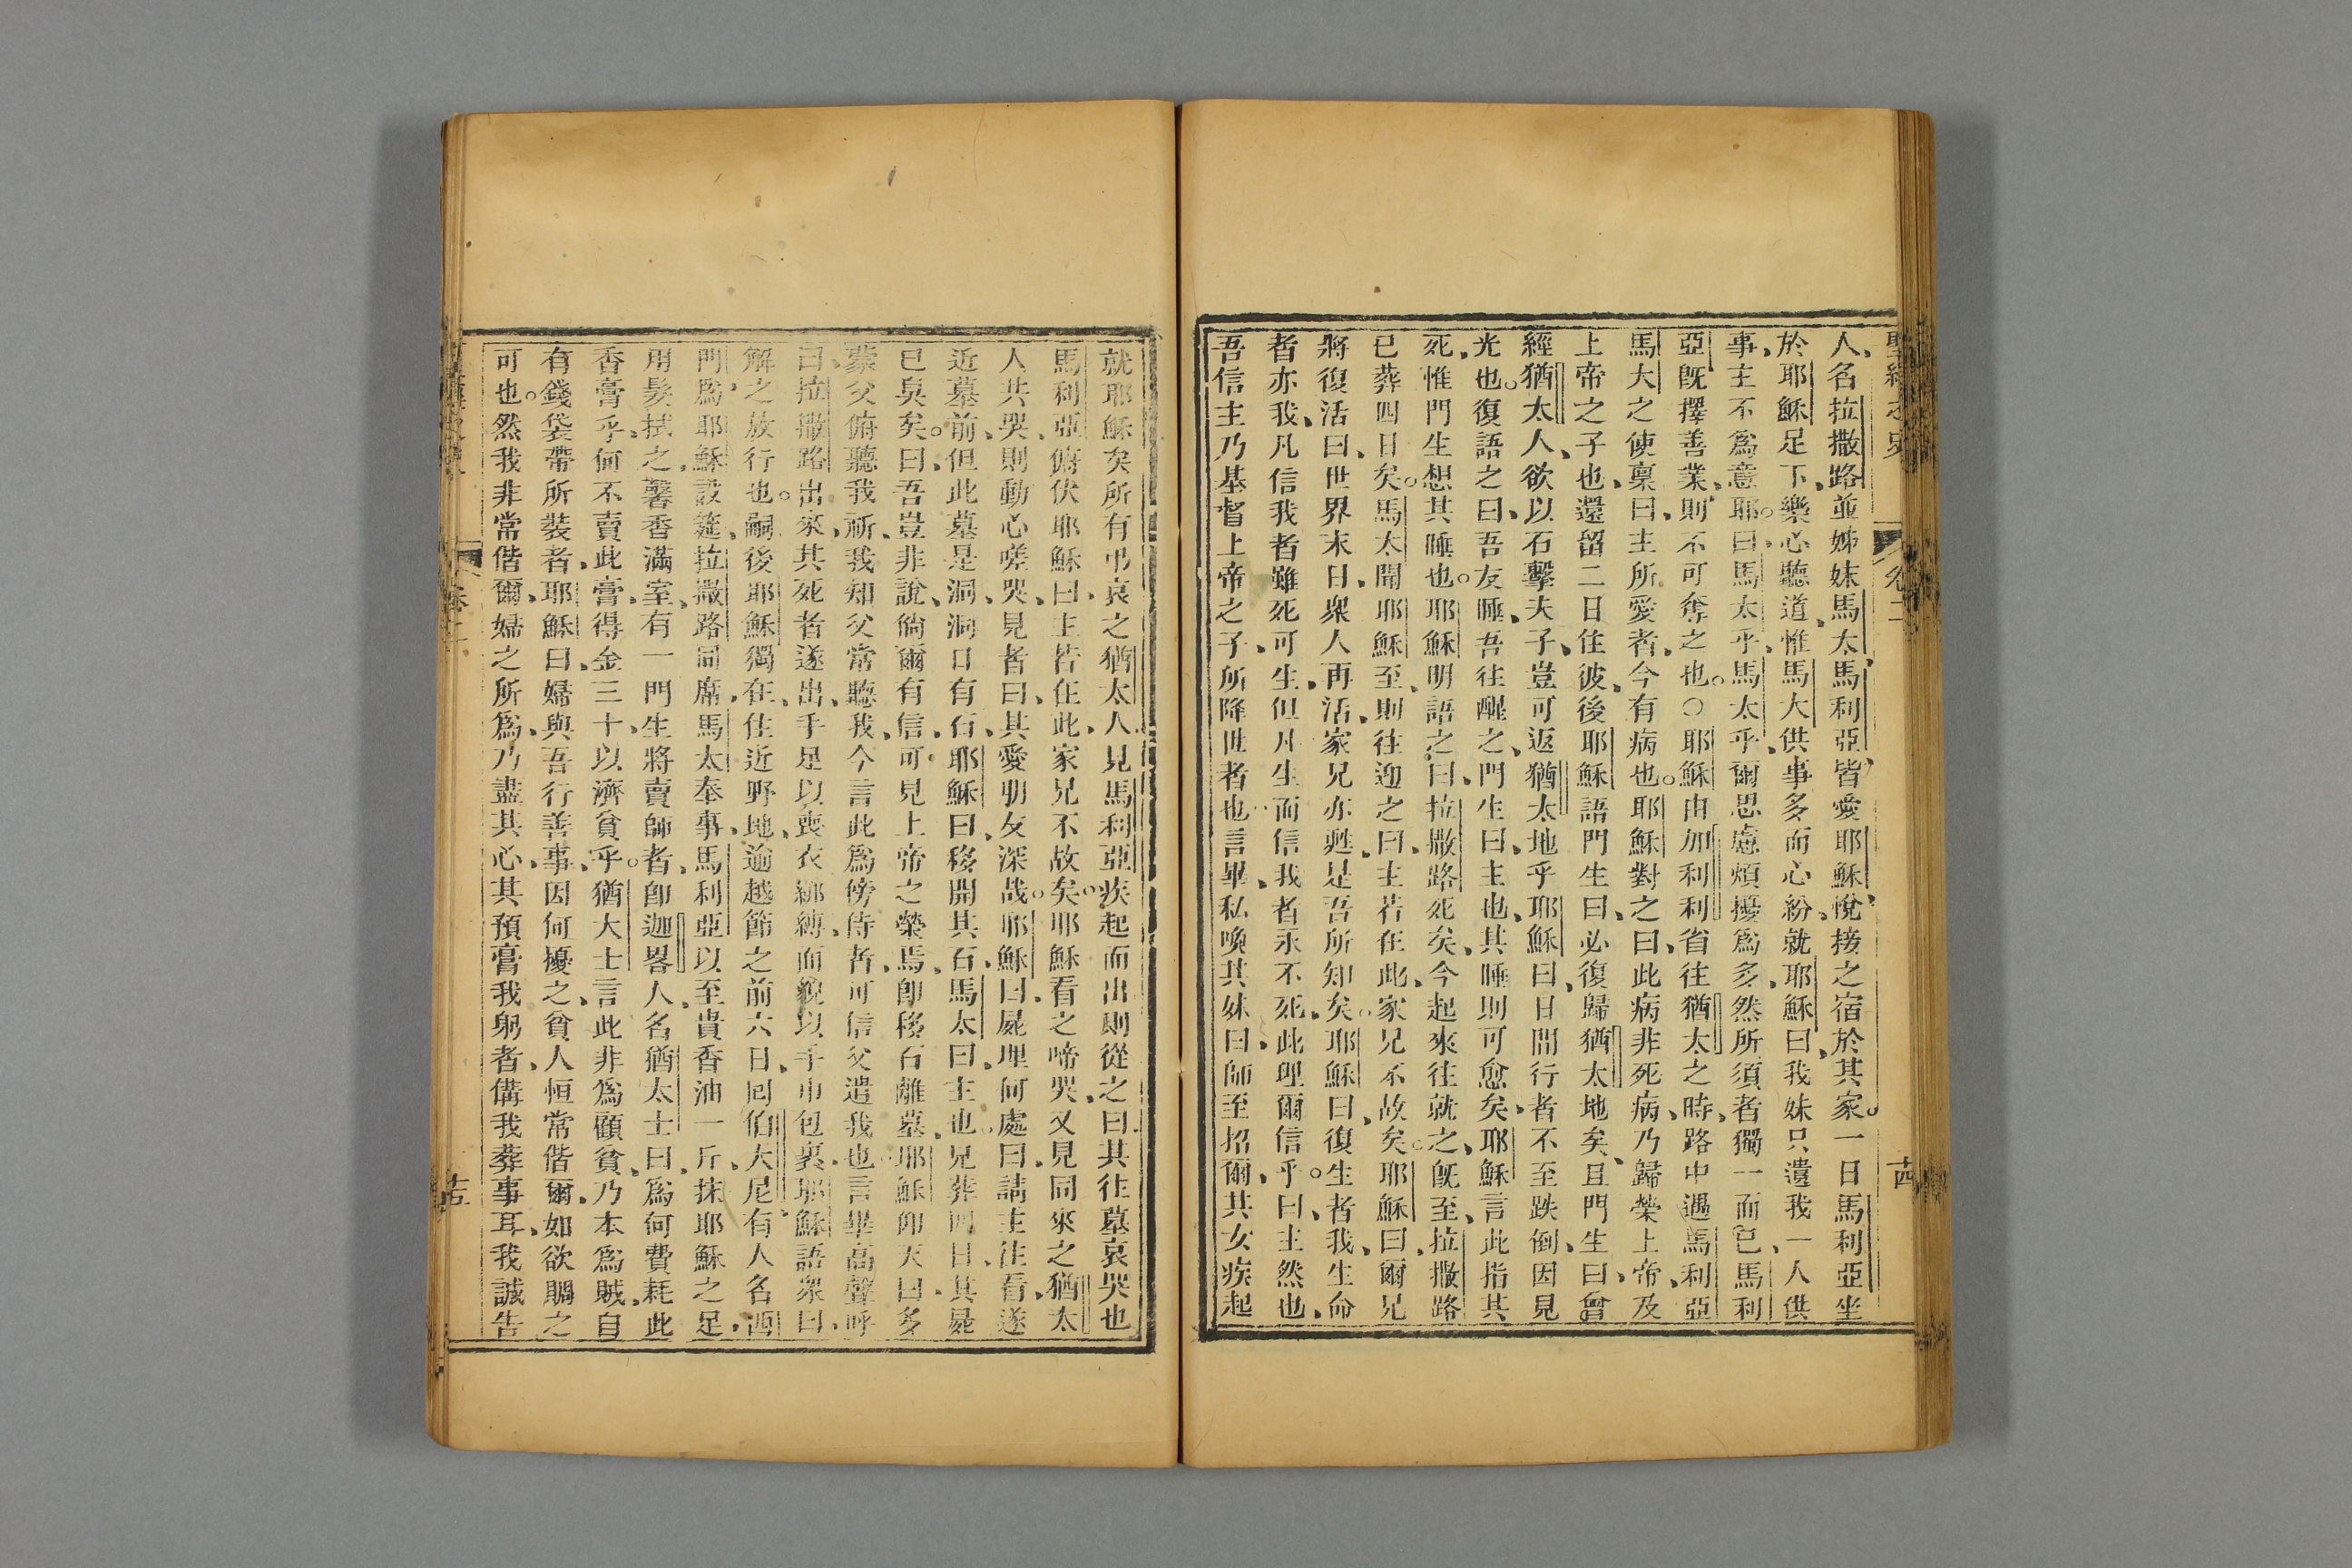 人、名拉撒路並姊妹馬太馬利亞、皆愛耶穌、悅接之宿於其家。一日馬利亞坐
於耶穌足下、樂心聽道、惟馬大供事多而心紛、就耶穌曰、我妹只遺我一人供
事、主不爲意耶。曰、馬太乎、馬太乎、爾思慮煩擾爲多、然所須者獨一而已、馬利
亞旣擇善業、則不可奪之也。○耶穌由加利利省往猶太之時、路中遇馬利亞
馬大之使稟曰、主所愛者、今有病也。耶穌對之曰、此病非死病、乃歸榮上帝、及
上帝之子也、還留二日住彼、後耶穌語門生曰、必復歸猶太地矣、且門生曰、曾
經猶太人、欲以石擊夫子、豈可返猶太地乎、耶穌曰、日間行者不至跌倒、因見
光也。復語之曰、吾友睡、吾往醒之、門生曰、主也、其睡則可愈矣、耶穌言此指其
死、惟門生想其睡也。耶穌明語之曰、拉撒路死矣、今起來往就之、旣至、拉撒路
已葬四日矣。馬太聞耶穌至、則往迎之曰、主若在此、家兄不故矣。耶穌曰、爾兄
將復活、曰、世界末日、衆人再活、家兄亦甦、是吾所知矣。耶穌曰、復生者我、生命
者亦我、凡信我者雖死可生、但凡生而信我者永不死、此理爾信乎。曰、主然也、
吾信主乃基督上帝之子、所降世者也、言畢、私喚其妹曰、師至招爾、其女疾起
聖經之史
卷二
十四
就耶穌矣所有弔哀之猶太人、見馬利亞疾起而出則從之曰其往墓哀哭也
馬利亞俯伏耶穌曰、主若在此、家兄不故矣。耶穌看之啼哭、又見同來之猶太
人共哭、則動心嗟哭、見者曰、其愛朋友深哉。耶穌曰、屍埋何處曰、請主往看、遂
近墓前、但此墓是洞、洞口有石、耶穌曰、移開其石、馬太曰、主也。兄葬四日、其屍
已臭矣。曰、吾豈非說、倘爾有信、可見上帝之榮焉、卽移石離墓、耶穌仰天曰、多
蒙父俯聽我祈、我知父常聽我、今言此爲傍侍者、可信父遣我也、言畢高聲呼
曰、拉撒路出來、其死者遂出、手足以喪衣綁縛、而貌以手巾包裹、耶穌語衆曰、
解之放行也。嗣後耶穌獨在住近野地、逾越節之前六日、囘伯大尼、有人名西
門、爲耶穌設筵、拉撒路同席、馬太奉事、馬利亞以至貴香油一斤、抹耶穌之足、
用髮拭之、馨香滿室、有一門生將賣師者、卽迦畧人、名猶太士曰、爲何費耗此
香膏乎、何不賣此膏、得金三十、以濟貧乎。猶大士言此非爲顧貧、乃本爲賊、自
有錢袋帶所裝者、耶穌曰、婦與吾行善事、因何擾之、貧人恒常偕爾、如欲賙之
可也。然我非常偕爾、婦之所爲、乃盡其心、其預膏我躬者、備我葬事耳、我誠告
卷二
十五